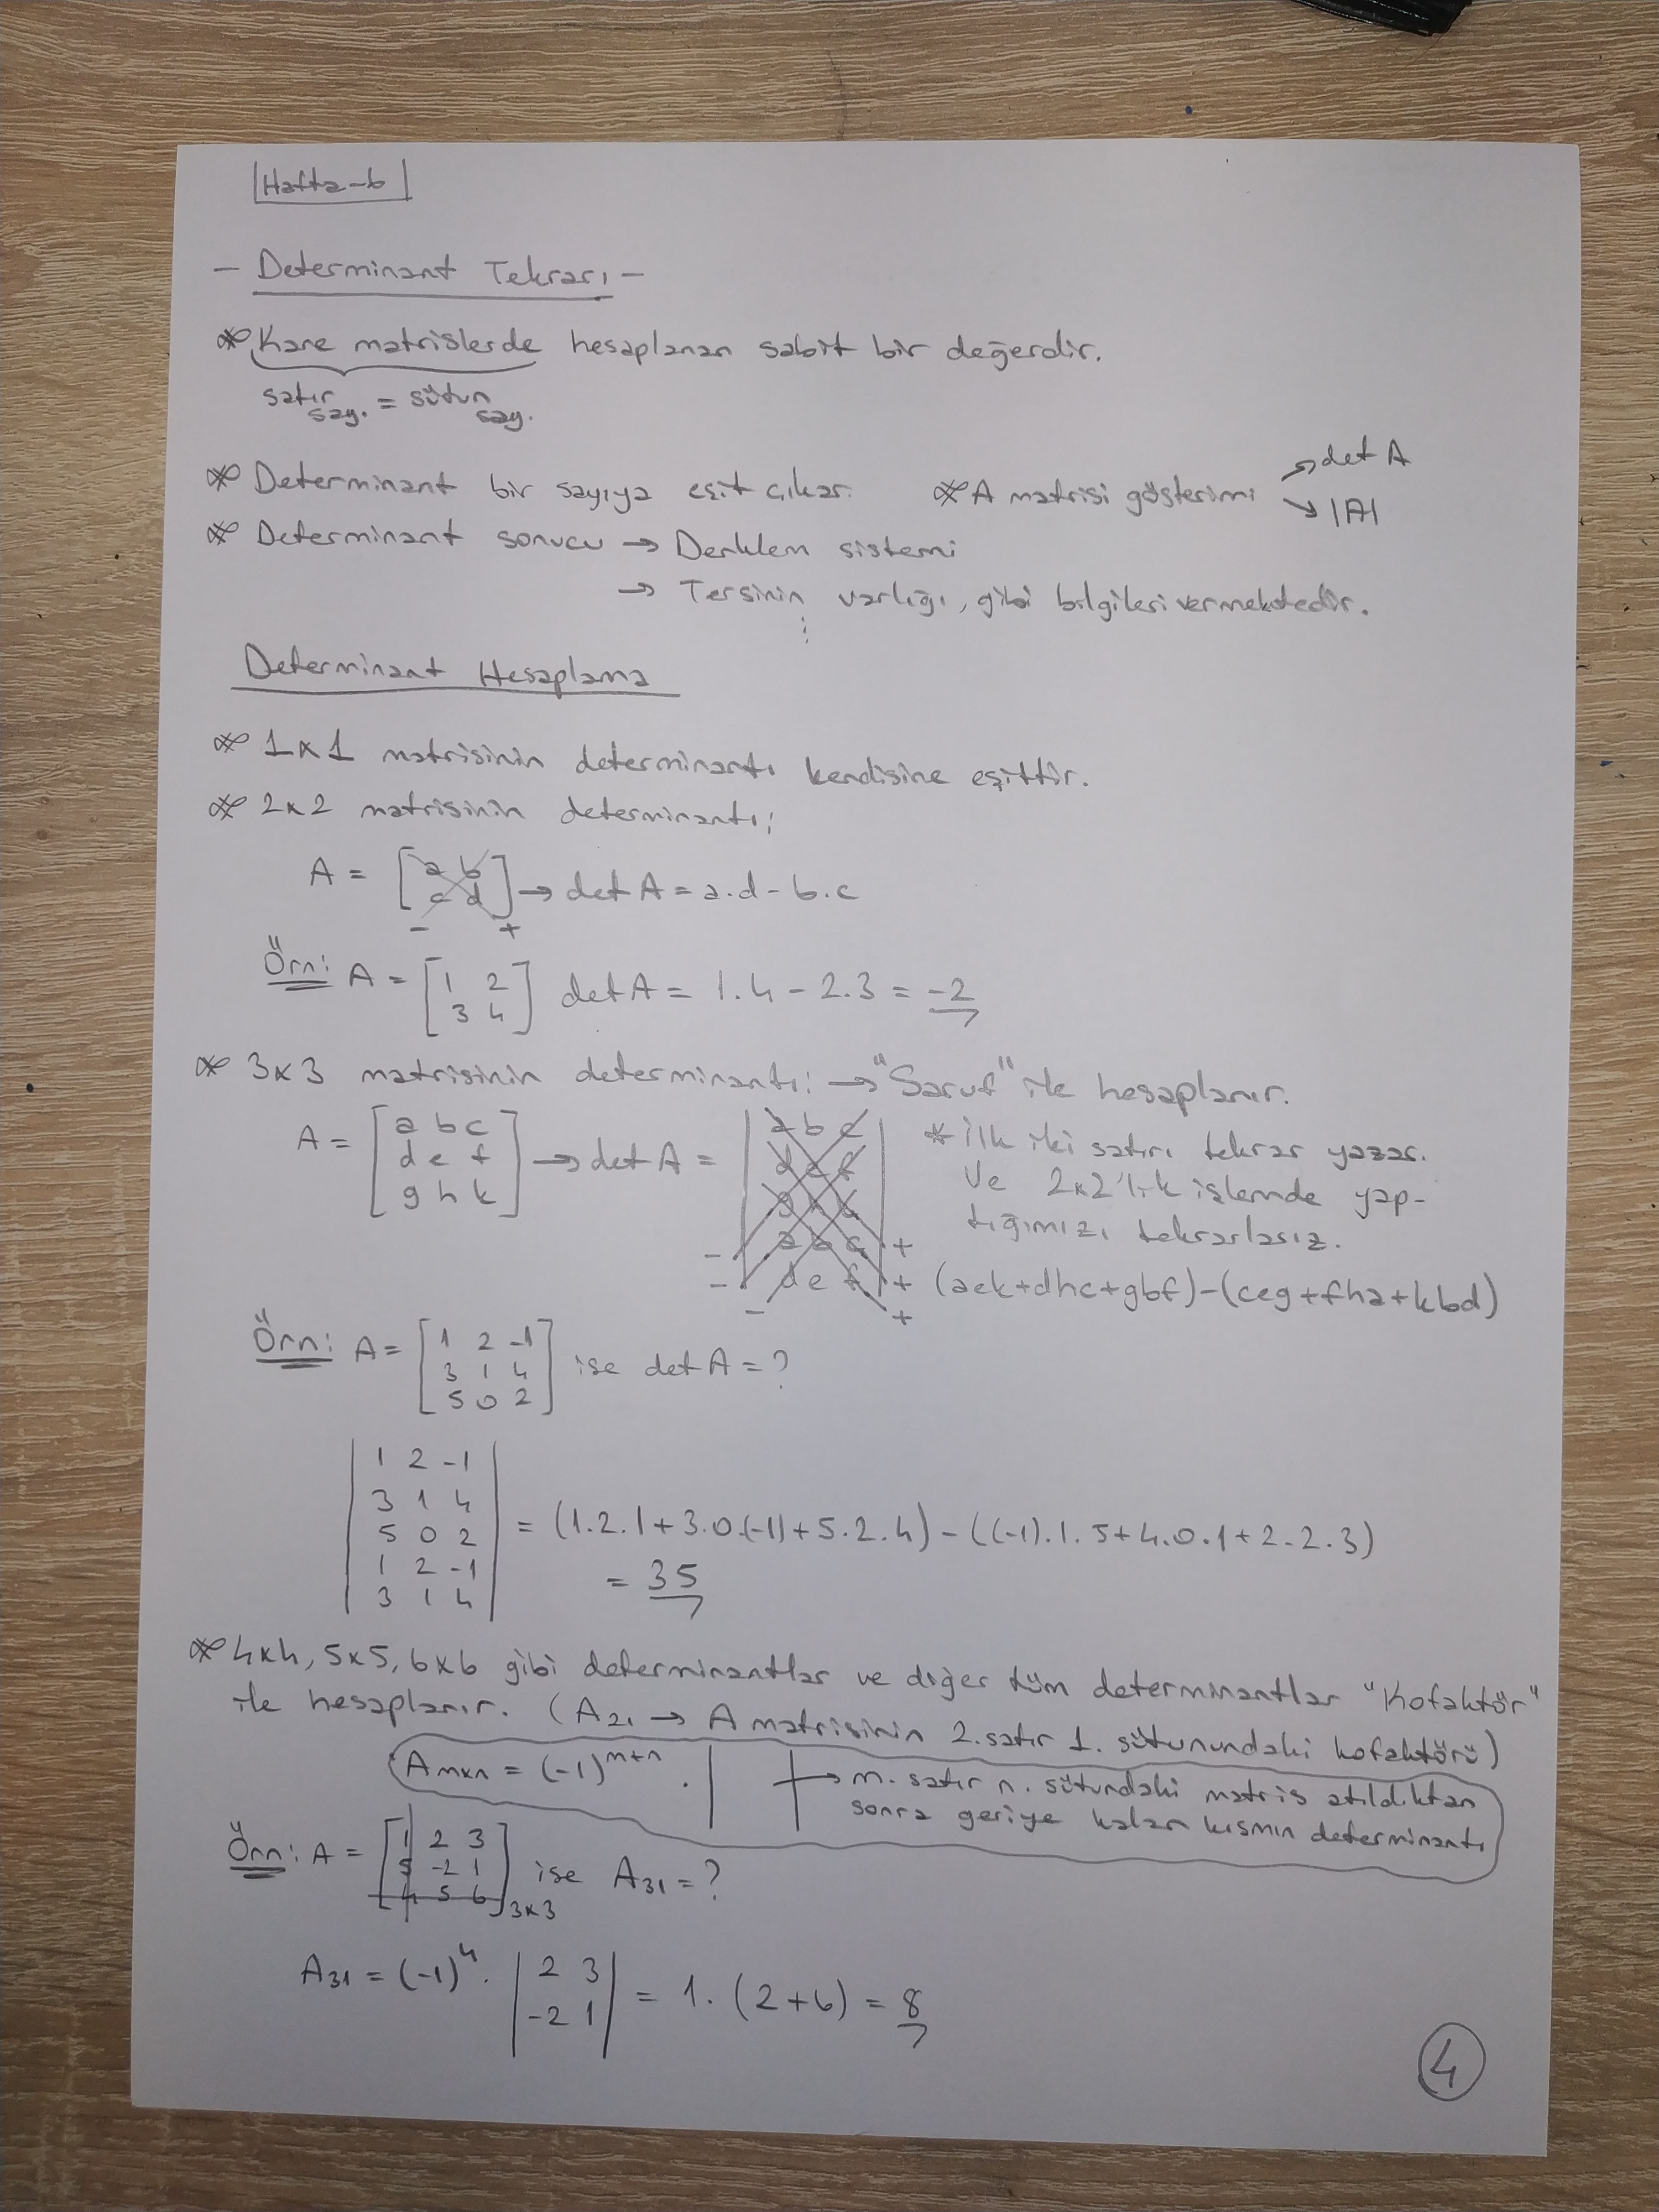 Hafta-6
- Determinant Tekrarı -
* Kare matrislerde hesaplanan sabit bir değerdir.
satır say. = sütun say.
* Determinant bir sayıya eşit çıkar. * A matrisi gösterimi → det A
→ |A|
* Determinant sonucu → Denklem sistemi
→ Tersinin varlığı, gibi bilgileri vermektedir.
⋮
Determinant Hesaplama
* 1x1 matrisinin determinantı kendisine eşittir.
* 2x2 matrisinin determinantı;
A = [a b
c d] → det A = a.d - b.c
- +
Örn: A = [1 2
3 4] det A = 1.4 - 2.3 = -2
* 3x3 matrisinin determinantı: → "Sarus" ile hesaplanır.
A = [a b c
d e f
g h k] → det A =
| a b c
d e f
g h k
a b c
d e f |
- - - + + +
* İlk iki satırı tekrar yazar.
ve 2x2'lik islemde yap-
tığımızı tekrarlarız.
(aek+dhc+gbf)-(ceg+fha+kbd)
Örn: A = [1 2 -1
3 1 4
5 0 2] ise det A = ?
| 1 2 -1
3 1 4
5 0 2
1 2 -1
3 1 4 | = (1.2.1+3.0.(-1)+5.2.4) - ((-1).1.5+4.0.1+2.2.3)
= 35
* 4x4, 5x5, 6x6 gibi determinantlar ve diğer tüm determinantlar "kofaktör"
ile hesaplanır. (A21 → A matrisinin 2. satır 1. sütunundaki kofaktörü)
Amxn = (-1)^m+n . | | → m. satır n. sütundaki matris atıldıktan
sonra geriye kalan kısmın determinantı
Örn: A = [1 2 3
5 -2 1
4 5 6]3x3 ise A31 = ?
A31 = (-1)^4 . | 2 3
-2 1 | = 1. (2+6) = 8
4